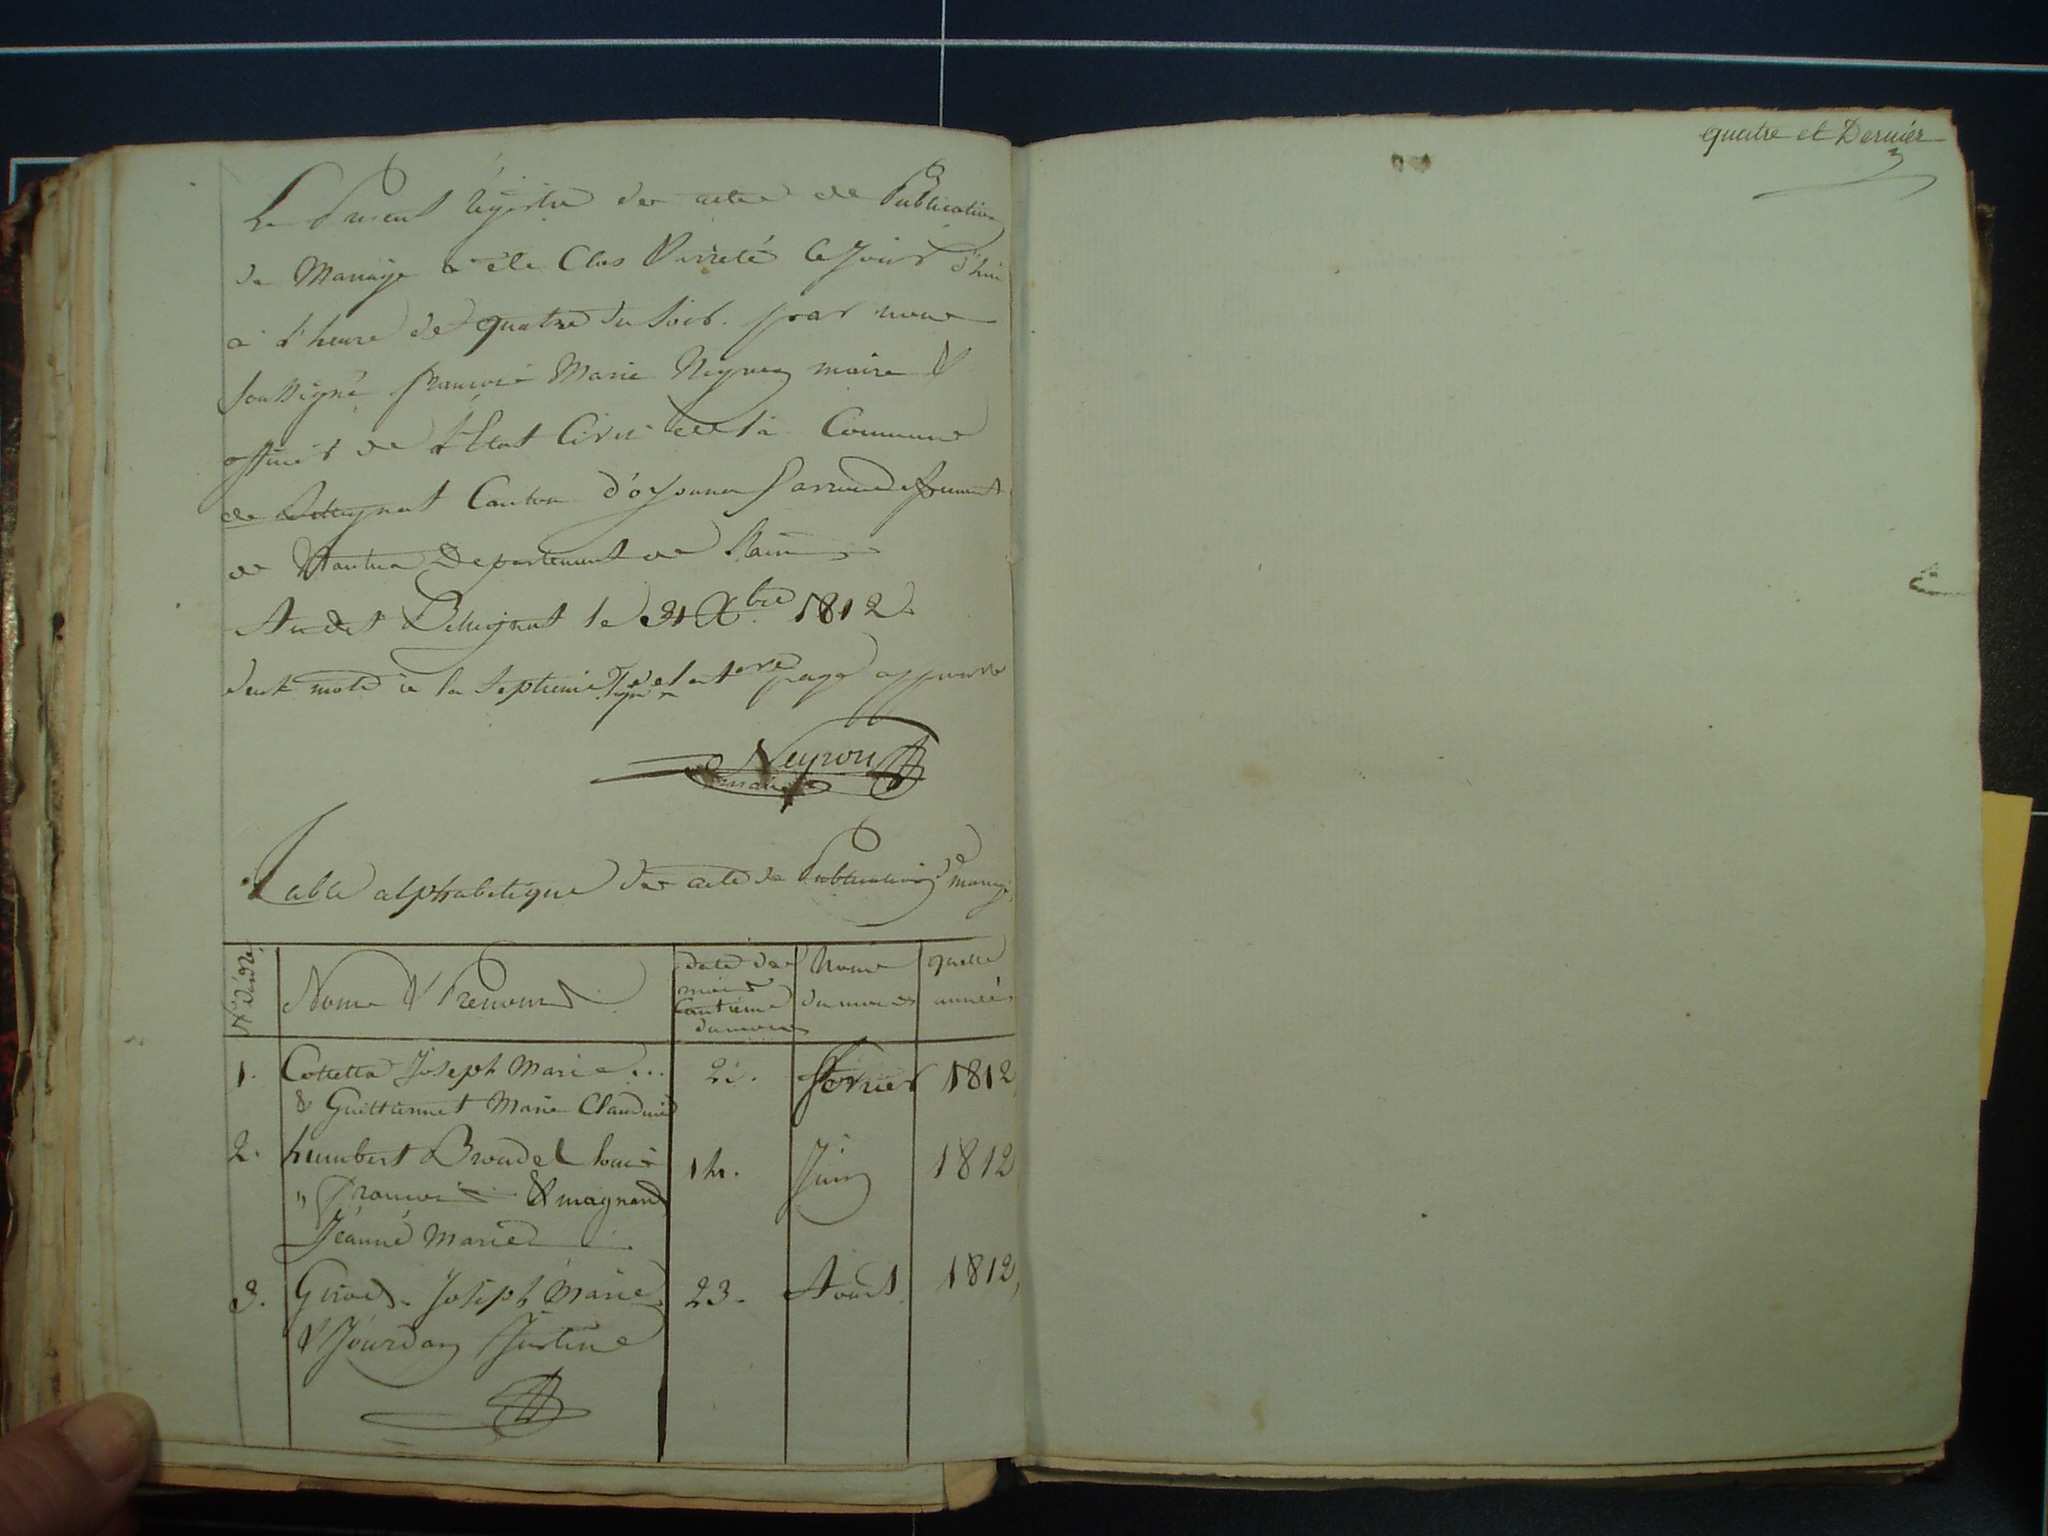 Le Present régistre des actes de Publication
de Mariage a été Clos & arreté Cejour d'hui
à l'heure de quatre du soir. par nous
soussigné francois Marie Neyron maire &
officier de l'Etat Civil de la Commune
de Bellignat Canton d'oyonna arrondissement
de Nantua Departement de l'ain
Audit Bellignat le 31 Xbre 1812.
deux mots à la septieme ligne de la 1ere page approuvé
Neyron
maire
Table alphabetique des actes de Publication de mariage
No. d'ordre.
Noms & Prenoms
date des
mois
Cantieme
du mois
Noms
du mois
quelle
année
1. Cottetta Joseph Marie... 22. fevrier 1812
& Guillermet Marie Claudine
2. humbert Brondel louis 14. Juin 1812
" francois & magnand
Jeanne Marie
3. Girod. Joseph Marie 23. Aout 1812,
& Jourdan Justine
quatre et Dernier